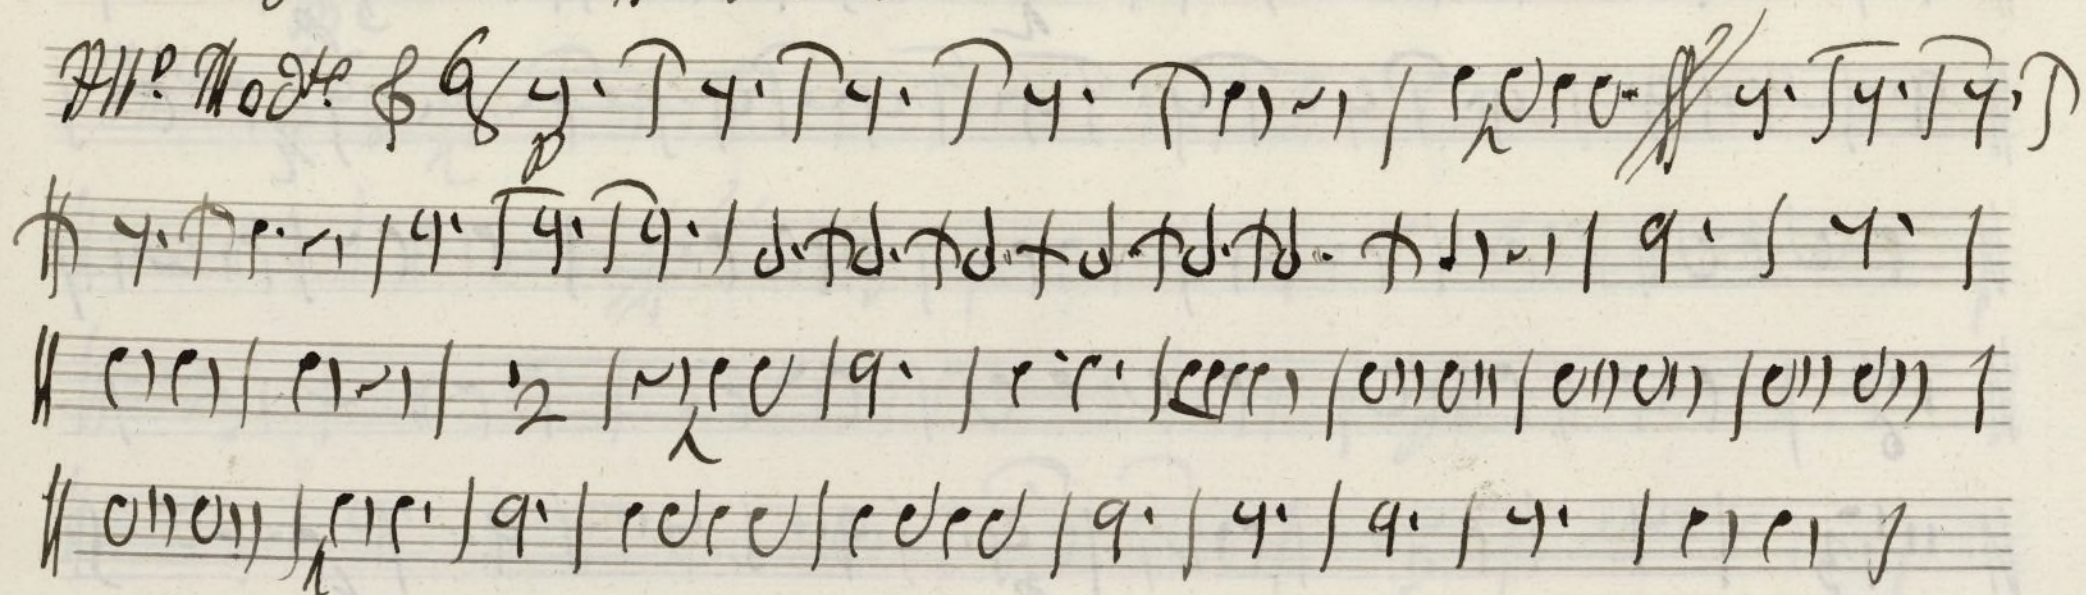 All.º Mod.to 6/8
p
2